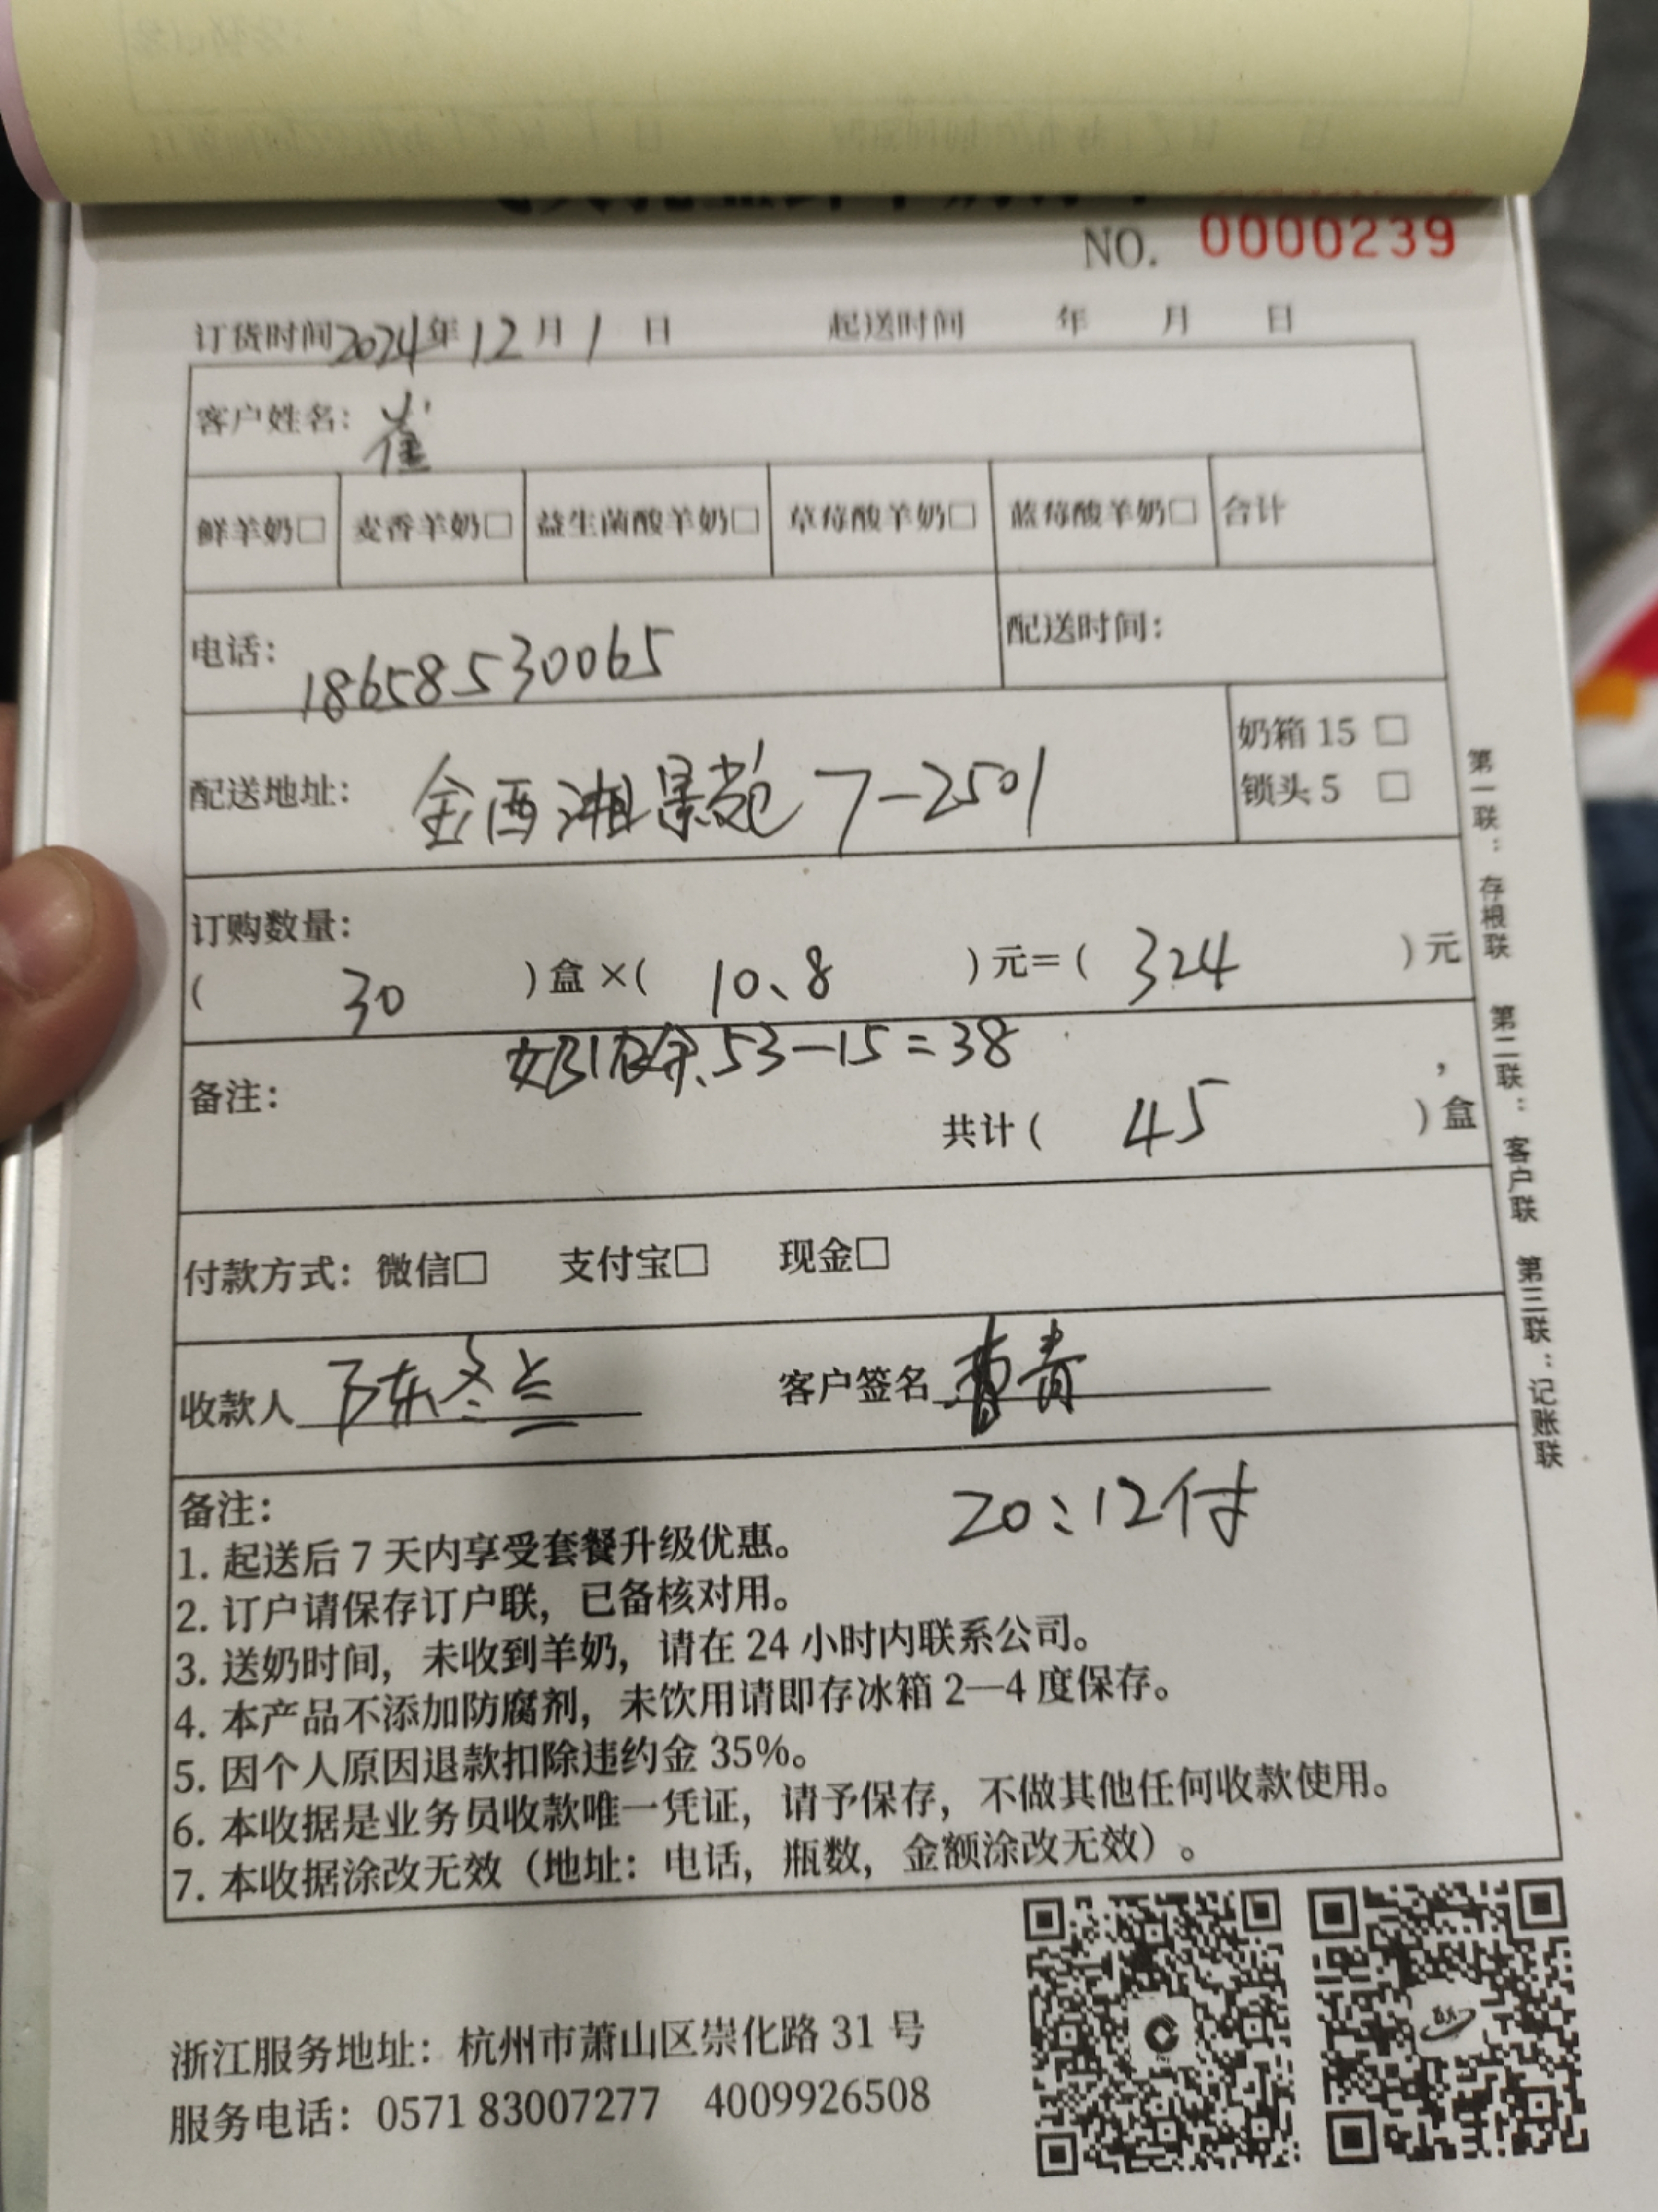 NO. 0000239
订货时间2024年12月1日 起送时间 年 月 日
客户姓名：崔
鲜羊奶□ 麦香羊奶□ 益生菌酸羊奶□ 草莓酸羊奶□ 蓝莓酸羊奶□ 合计
电话：18658530065 配送时间：
配送地址：金西湘景苑 7-2501
奶箱 15 □
锁头 5 □
订购数量：
（ 30 ）盒×（ 10、8 ）元=（ 324 ）元
53-15=38
备注：
共计（ 45 ）盒
付款方式：微信□ 支付宝□ 现金□
收款人 陈冬兰 客户签名 曹青
20:12付
备注：
1. 起送后 7 天内享受套餐升级优惠。
2. 订户请保存订户联，已备核对用。
3. 送奶时间，未收到羊奶，请在 24 小时内联系公司。
4. 本产品不添加防腐剂，未饮用请即存冰箱 2—4 度保存。
5. 因个人原因退款扣除违约金 35%。
6. 本收据是业务员收款唯一凭证，请予保存，不做其他任何收款使用。
7. 本收据涂改无效（地址：电话，瓶数，金额涂改无效）。
第一联：存根联 第二联：客户联 第三联：记账联
浙江服务地址：杭州市萧山区崇化路 31 号
服务电话：0571 83007277 4009926508